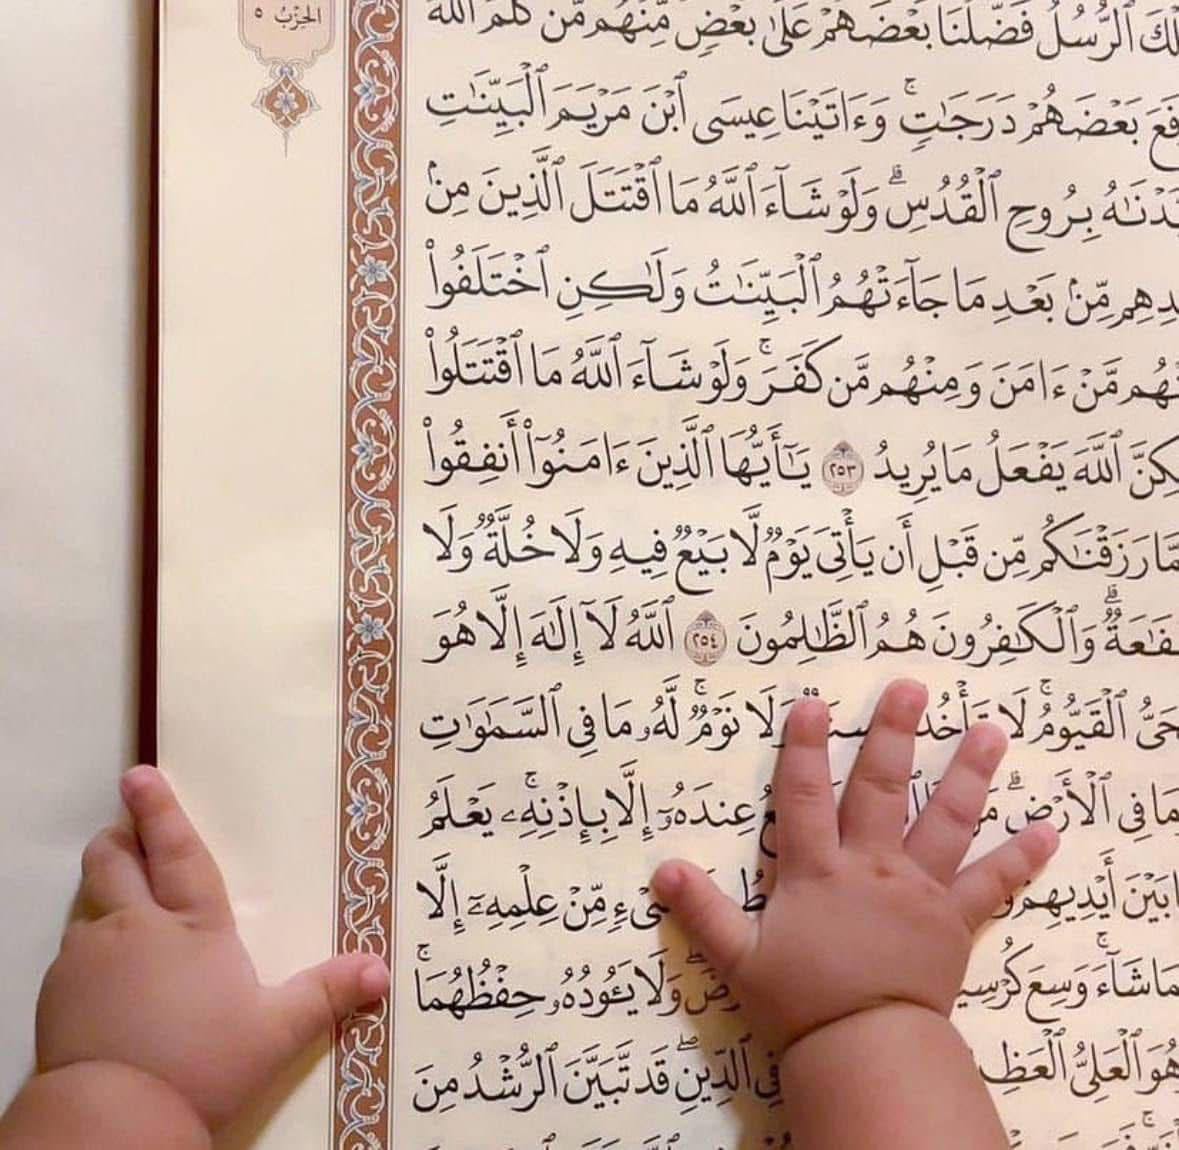 الحِزْبُ ٥
لْكَ ٱلرُّسُلُ فَضَّلْنَا بَعْضَهُمْ عَلَىٰ بَعْضٍ مِّنْهُم مَّن كَلَّمَ ٱللَّهُ
فَعَ بَعْضَهُمْ دَرَجَٰتٍ ۚ وَءَاتَيْنَا عِيسَى ٱبْنَ مَرْيَمَ ٱلْبَيِّنَٰتِ
يَّدْنَٰهُ بِرُوحِ ٱلْقُدُسِ ۗ وَلَوْ شَآءَ ٱللَّهُ مَا ٱقْتَتَلَ ٱلَّذِينَ مِنۢ
دِهِم مِّنۢ بَعْدِ مَا جَآءَتْهُمُ ٱلْبَيِّنَٰتُ وَلَٰكِنِ ٱخْتَلَفُوا۟
نْهُم مَّنْ ءَامَنَ وَمِنْهُم مَّن كَفَرَ ۚ وَلَوْ شَآءَ ٱللَّهُ مَا ٱقْتَتَلُوا۟
كِنَّ ٱللَّهَ يَفْعَلُ مَا يُرِيدُ ٢٥٣ يَٰٓأَيُّهَا ٱلَّذِينَ ءَامَنُوٓا۟ أَنفِقُوا۟
مَّا رَزَقْنَٰكُم مِّن قَبْلِ أَن يَأْتِىَ يَوْمٌ لَّا بَيْعٌ فِيهِ وَلَا خُلَّةٌ وَلَا
فَٰعَةٌ ۗ وَٱلْكَٰفِرُونَ هُمُ ٱلظَّٰلِمُونَ ٢٥٤ ٱللَّهُ لَآ إِلَٰهَ إِلَّا هُوَ
حَىُّ ٱلْقَيُّومُ ۚ لَا تَأْخُذُ سِنَةٌ وَلَا نَوْمٌ ۚ لَّهُۥ مَا فِى ٱلسَّمَٰوَٰتِ
مَا فِى ٱلْأَرْضِ ۗ مَن عُ عِندَهُۥٓ إِلَّا بِإِذْنِهِۦ ۚ يَعْلَمُ
ا بَيْنَ أَيْدِيهِمْ وَ طُ شَىْءٍ مِّنْ عِلْمِهِۦٓ إِلَّا
مَا شَآءَ ۚ وَسِعَ كُرْسِيُّ رْضَ ۖ وَلَا يَـُٔودُهُۥ حِفْظُهُمَا ۚ
هُوَ ٱلْعَلِىُّ ٱلْعَظِ فِى ٱلدِّينِ ۖ قَد تَّبَيَّنَ ٱلرُّشْدُ مِنَ